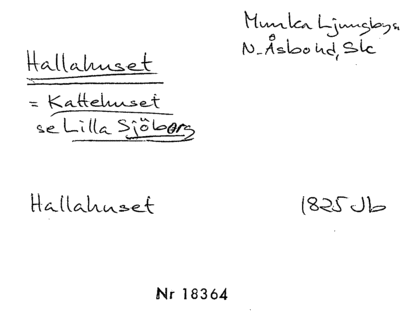 Munka Ljungby s.
N. Åsbo hd, Sk
Hallahuset
= Kattehuset
se Lilla Sjöberg
Hallahuset 1825 Jb
Nr 18364